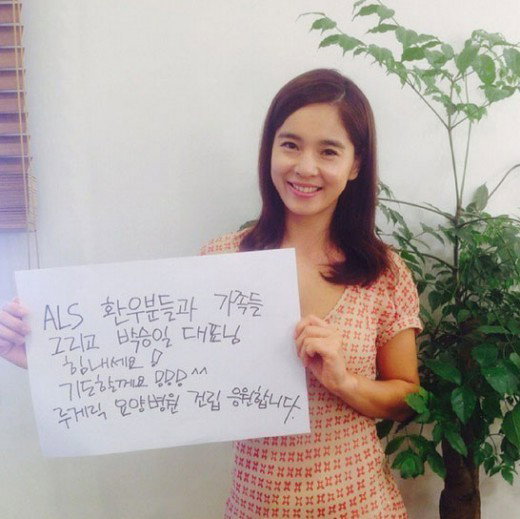 ALS 환우분들과 가족들
그리고 박승일 대표님
힘내세요!
기도할께요!!! ^^
루게릭 요양병원 건립 응원합니다.